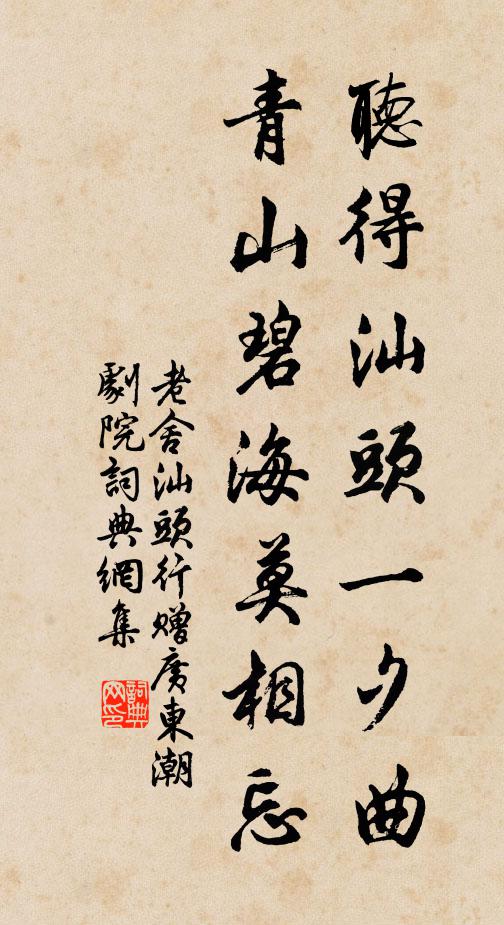 聽得汕頭一夕曲
青山碧海莫相忘
老舍汕頭行赠廣東潮
劇院詞典網集
詞典网印